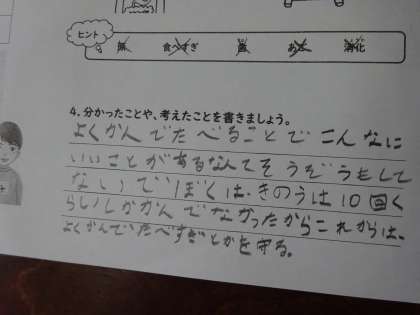 ヒント
食べすぎ
消化
4. 分かったことや、考えたことを書きましょう。
よくかんでたべることでこんなに
いいことがあるなんてそうぞうもして
ない、でぼくは、きのうは10回く
らいしかかんでなかったからこれからは、
よくかんでいたべすぎとかを守る。